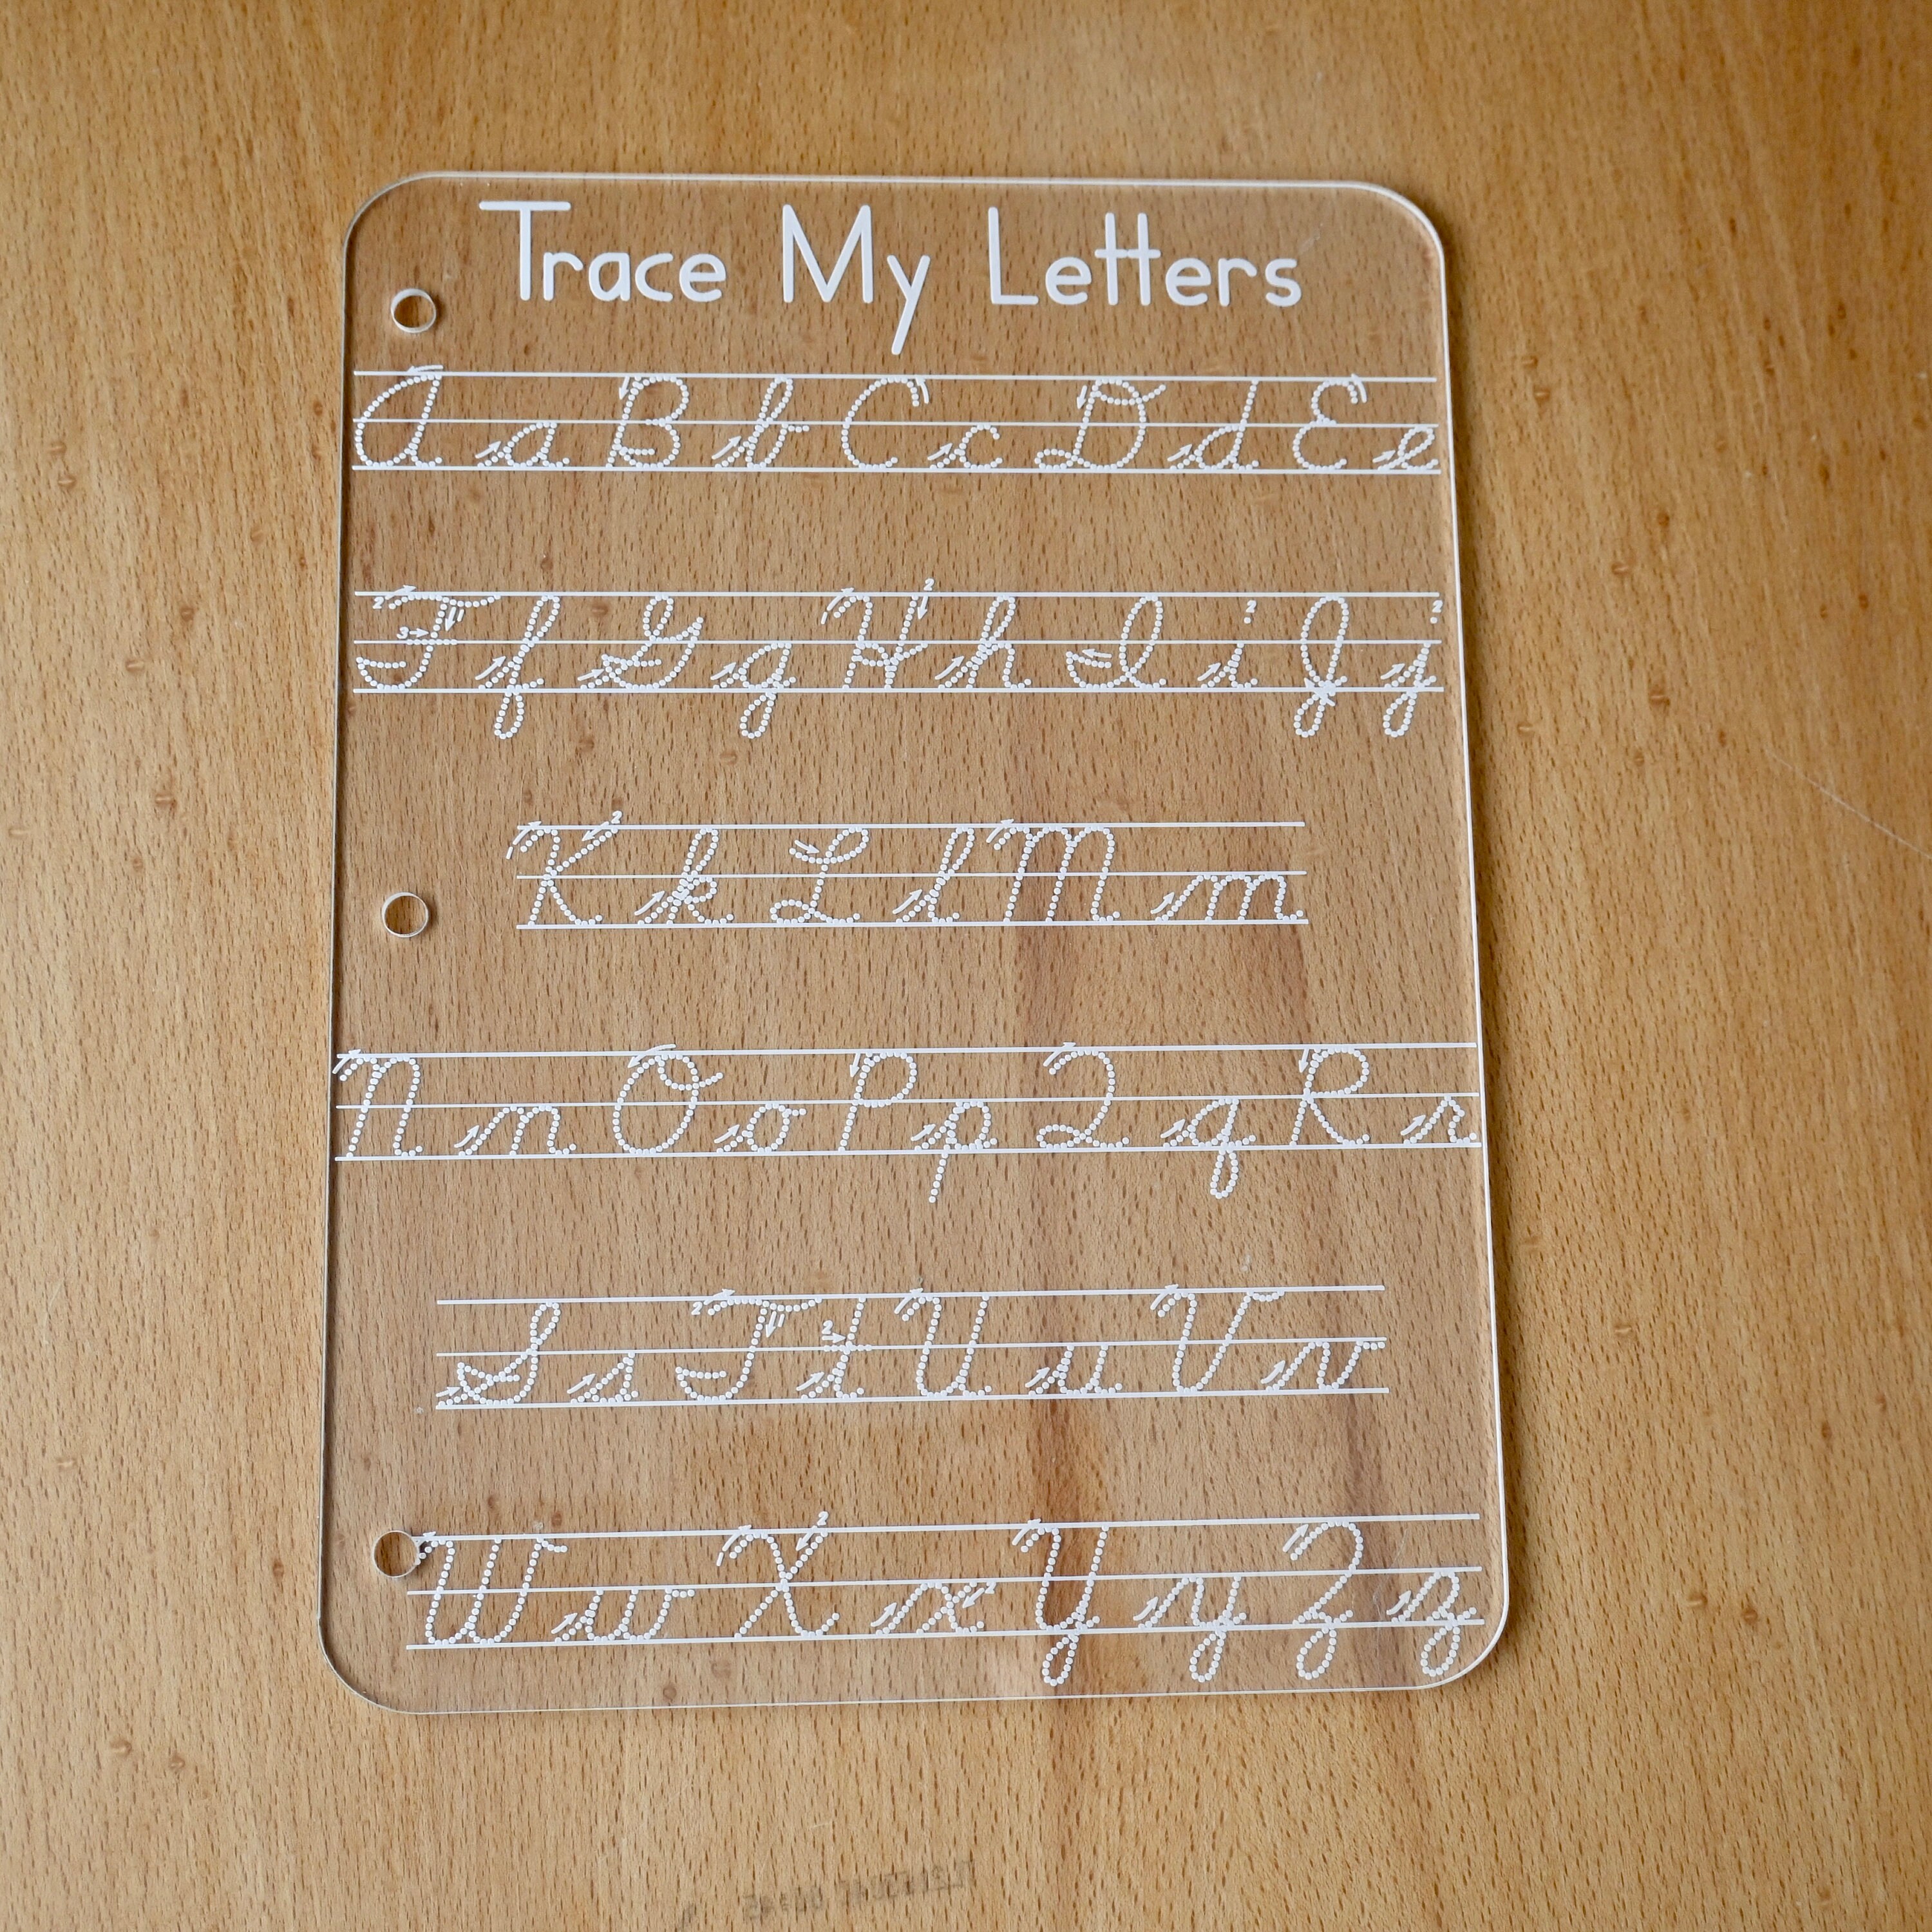 Trace My Letters
A a B b C c D d E e
F f G g H h I i J j
K k L l M m
N n O o P p Q q R r
S s T t U u V v
W w X x Y y Z z